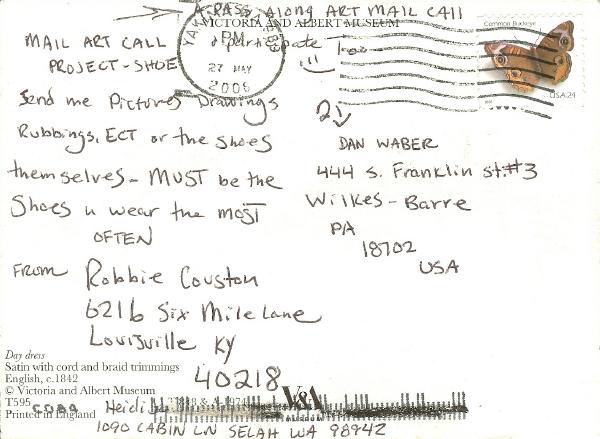 A PASS along ART MAIL CAll
VICTORIA AND ALBERT MUSEUM
MAIL ART CALL
participate Too
PROJECT - SHOE
PM
27 MAY
2006
Common Buckeye
USA 24
Send me Pictures Drawings
Rubbings, ECT or the shoes
themselves - MUST be the
Shoes u wear the most
OFTEN
DAN WABER
444 S. Franklin st. #3
Wilkes - Barre
PA
18702
USA
FROM Robbie Couston
6216 Six Mile Lane
Louisville KY
40218
Day dress
Satin with cord and braid trimmings
English, c.1842
© Victoria and Albert Museum
T595
Printed in England
V&A
MUSEUM
Heidi
1090 CABIN LN SELAH WA 98942